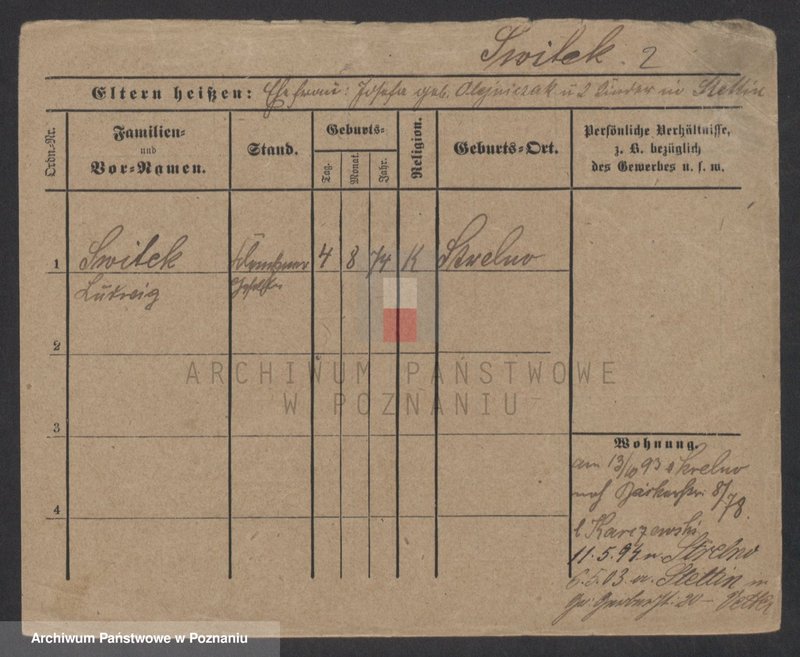 Switek. 2
Eltern heißen: Ehefrau: Josefa geb. Olejniczak u 2 Kinder in Stettin
Ordn.-Nr.
Familien-
und
Vor-Namen.
Stand.
Geburts-
Tag.
Monat.
Jahr.
Religion.
Geburts-Ort.
Persönliche Verhältnisse,
z. B. bezüglich
des Gewerbes u. s. w.
1
Switek
Ludwig
4
8
74
K
Strelno
2
3
4
Wohnung.
am 13/10 93 Strelno
nach 8/78
b Karczewski
11.5.94 n. Strelno
6.5.03 a. Stettin in
Gr. Gerberstr. 20 -
ARCHIWUM PAŃSTWOWE
W POZNANIU
Archiwum Państwowe w Poznaniu